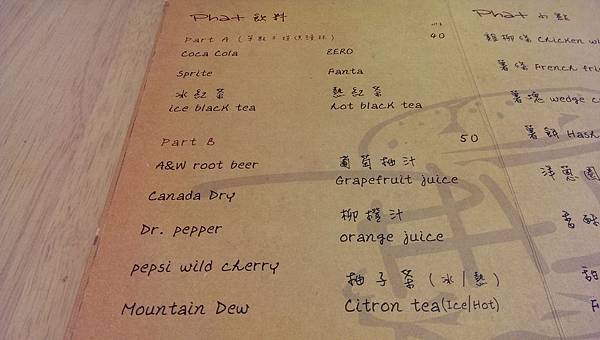 Phat 飲料
Part A 40
Coca Cola ZERO
Sprite Fanta
冰紅茶 熱紅茶
ice black tea hot black tea
Part B 50
A&W root beer 葡萄柚汁
Grapefruit juice
Canada Dry
Dr. pepper 柳橙汁
orange juice
pepsi wild cherry 柚子茶(冰/熱)
Mountain Dew Citron tea(Ice/Hot)
Phat 小點
雞柳條 Chicken wi
薯條 French fri
薯塊 wedge c
薯餅 Hash
洋蔥圈
香酥
甜
F